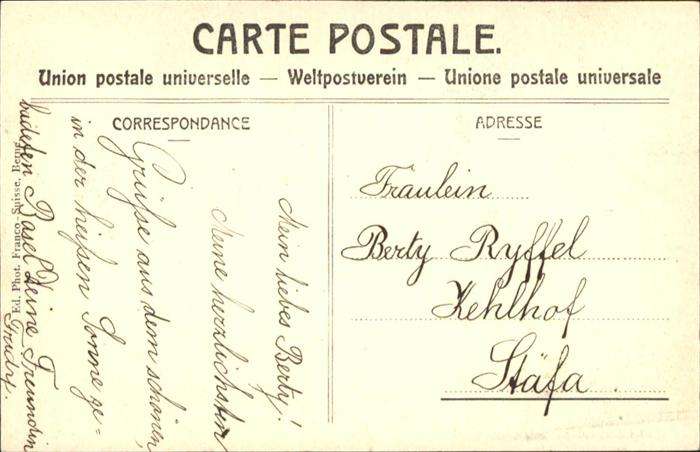 CARTE POSTALE.
Union postale universelle — Weltpostverein — Unione postale universale
CORRESPONDANCE
Mein liebes Berty!
Meine herzlichsten
Grüsse aus dem schönen,
in der heissen Sonne ge=
badeten Basel Deine Freundin
Trudy.
Ed. Phot. Franco-Suisse, Berne
ADRESSE
Fräulein
Berty Ryffel
Kehlhof
Stäfa.